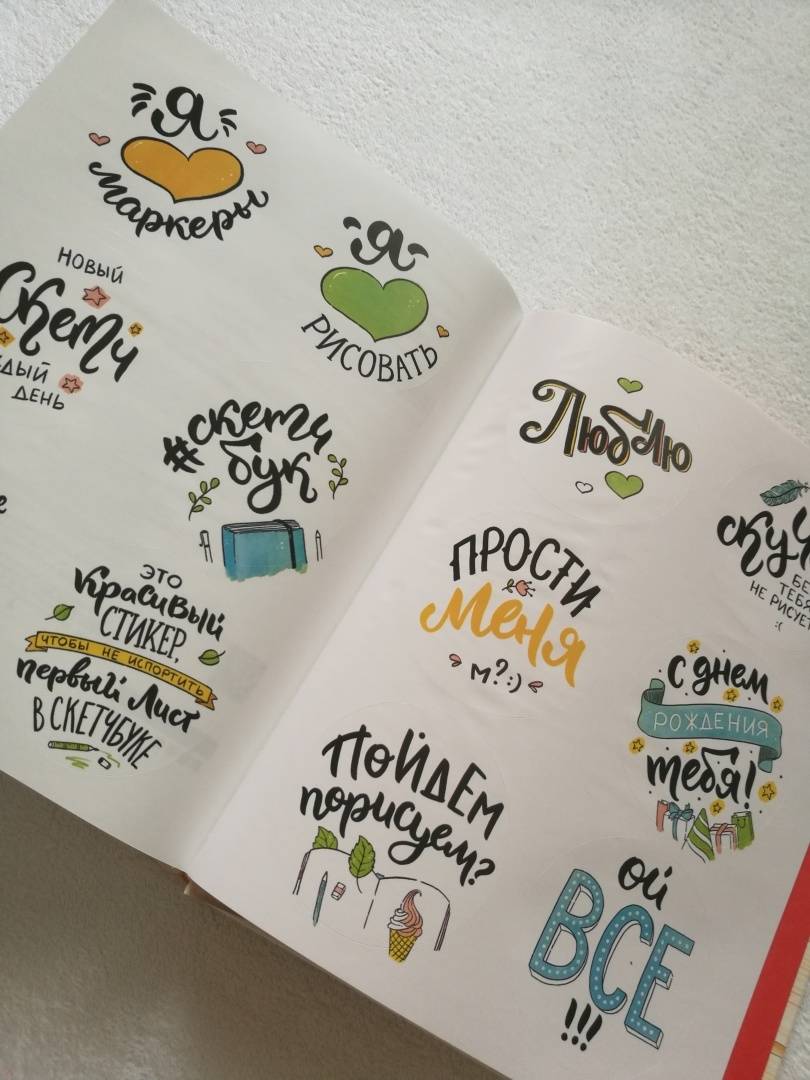 Я
маркеры
Я
РИСОВАТЬ
НОВЫЙ
Скетч
ДЕНЬ
#скетч
бук
ЭТО
Красивый
СТИКЕР,
ЧТОБЫ НЕ ИСПОРТИТЬ
первый Лист
В СКЕТЧБУКЕ
Люблю
ПРОСТИ
Меня
м?:)
БЕ
ТЕБЯ
НЕ РИСУЕТ
:(
с днем
РОЖДЕНИЯ
тебя!
ПОЙДЕМ
порисуем?
ОЙ
ВСЕ
!!!